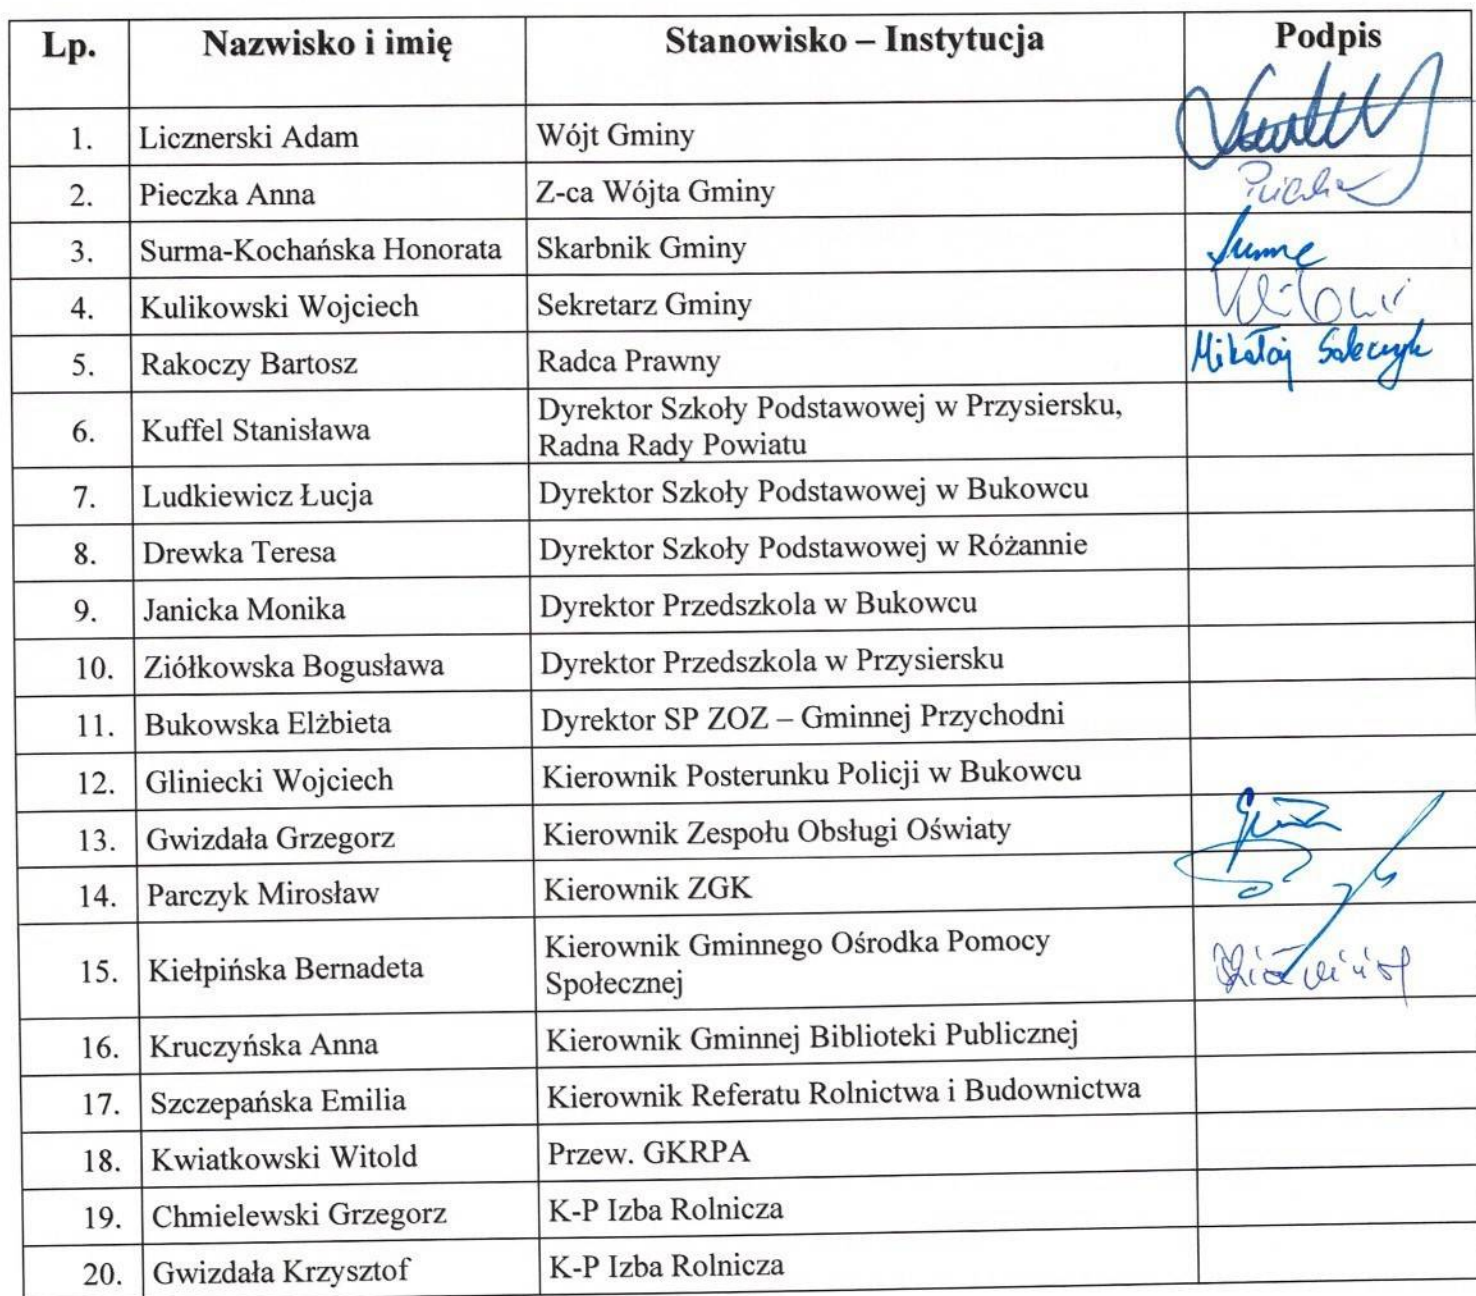 Lp. Nazwisko i imię Stanowisko – Instytucja Podpis
1. Licznerski Adam Wójt Gminy
2. Pieczka Anna Z-ca Wójta Gminy
3. Surma-Kochańska Honorata Skarbnik Gminy
4. Kulikowski Wojciech Sekretarz Gminy
5. Rakoczy Bartosz Radca Prawny Mikołaj
6. Kuffel Stanisława Dyrektor Szkoły Podstawowej w Przysiersku,
Radna Rady Powiatu
7. Ludkiewicz Łucja Dyrektor Szkoły Podstawowej w Bukowcu
8. Drewka Teresa Dyrektor Szkoły Podstawowej w Różannie
9. Janicka Monika Dyrektor Przedszkola w Bukowcu
10. Ziółkowska Bogusława Dyrektor Przedszkola w Przysiersku
11. Bukowska Elżbieta Dyrektor SP ZOZ – Gminnej Przychodni
12. Gliniecki Wojciech Kierownik Posterunku Policji w Bukowcu
13. Gwizdała Grzegorz Kierownik Zespołu Obsługi Oświaty
14. Parczyk Mirosław Kierownik ZGK
15. Kiełpińska Bernadeta Kierownik Gminnego Ośrodka Pomocy
Społecznej
16. Kruczyńska Anna Kierownik Gminnej Biblioteki Publicznej
17. Szczepańska Emilia Kierownik Referatu Rolnictwa i Budownictwa
18. Kwiatkowski Witold Przew. GKRPA
19. Chmielewski Grzegorz K-P Izba Rolnicza
20. Gwizdała Krzysztof K-P Izba Rolnicza